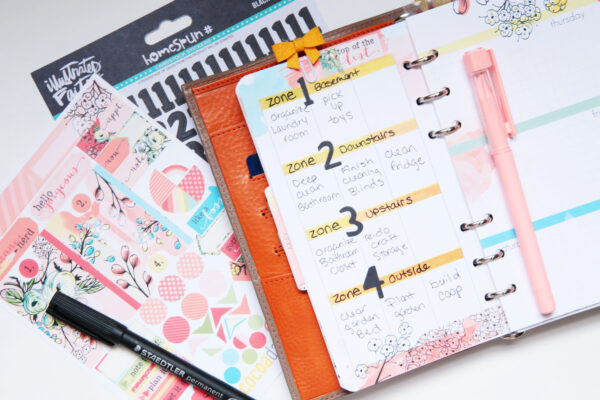 homespun
Illustrated
Faith
top of the
list...
zone 1 Basement
Organize
Laundry
room
pick
up
toys
zone 2 Downstairs
Deep
clean
Bathroom
Finish
cleaning
Blinds
clean
fridge
zone 3 Upstairs
Organize
Bathroom
Closet
re-do
craft
Storage
zone 4 Outside
clear
garden
Bed
plant
garden
build
coop
thursday
hello
STAEDTLER permanent